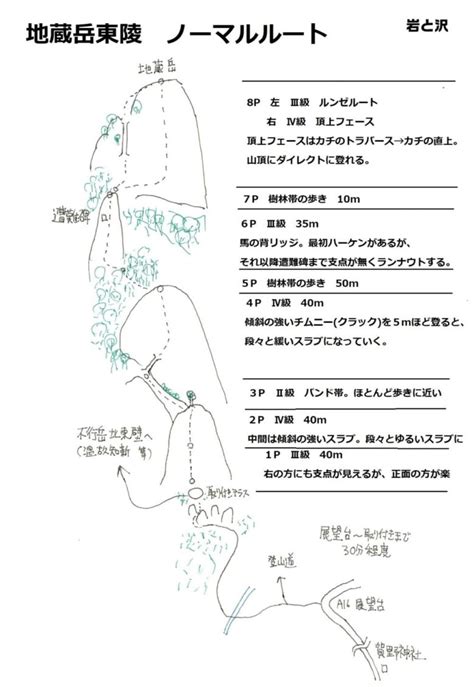 地蔵岳東陵　ノーマルルート
岩と沢
地蔵岳
8P　左　Ⅲ級　ルンゼルート
右　Ⅳ級　頂上フェース
頂上フェースはカチのトラバース→カチの直上。
山頂にダイレクトに登れる。
遭難碑
7P　樹林帯の歩き　10m
6P　Ⅲ級　35m
馬の背リッジ。最初ハーケンがあるが、
それ以降遭難碑まで支点が無くランナウトする。
5P　樹林帯の歩き　50m
4P　Ⅳ級　40m
傾斜の強いチムニー(クラック)を5mほど登ると、
段々と緩いスラブになっていく。
3P　Ⅱ級　バンド帯。ほとんど歩きに近い
2P　Ⅳ級　40m
中間は傾斜の強いスラブ。段々とゆるいスラブに
1P　Ⅲ級　40m
右の方にも支点が見えるが、正面の方が楽
不行岳北東壁へ
(温故知新 等)
取り付きテラス
展望台～取り付きまで
30分程度
登山道
A16 展望台